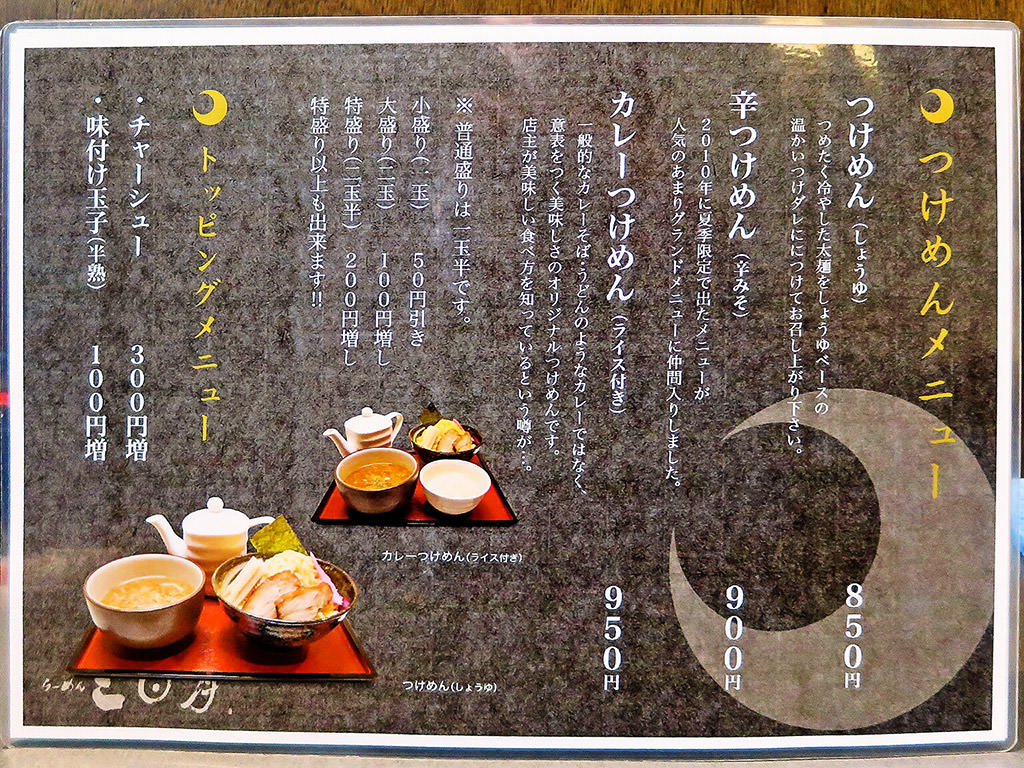 つけめんメニュー
つけめん（しょうゆ） 850円
つめたく冷やした太麺をしょうゆベースの
温かいつけダレにつけてお召し上がり下さい。
辛つけめん（辛みそ） 900円
2010年に夏季限定で出たメニューが
人気のあまりグランドメニューに仲間入りしました。
カレーつけめん（ライス付き） 950円
一般的なカレーそば・うどんのようなカレーではなく、
意表をつく美味しさのオリジナルつけめんです。
店主が美味しい食べ方を知っているという噂が…。
※普通盛りは一玉半です。
小盛り（一玉） 50円引き
大盛り（二玉） 100円増し
特盛り（二玉半） 200円増し
特盛り以上も出来ます!!
トッピングメニュー
・チャーシュー 300円増
・味付け玉子（半熟） 100円増
カレーつけめん（ライス付き）
つけめん（しょうゆ）
らーめん 三日月